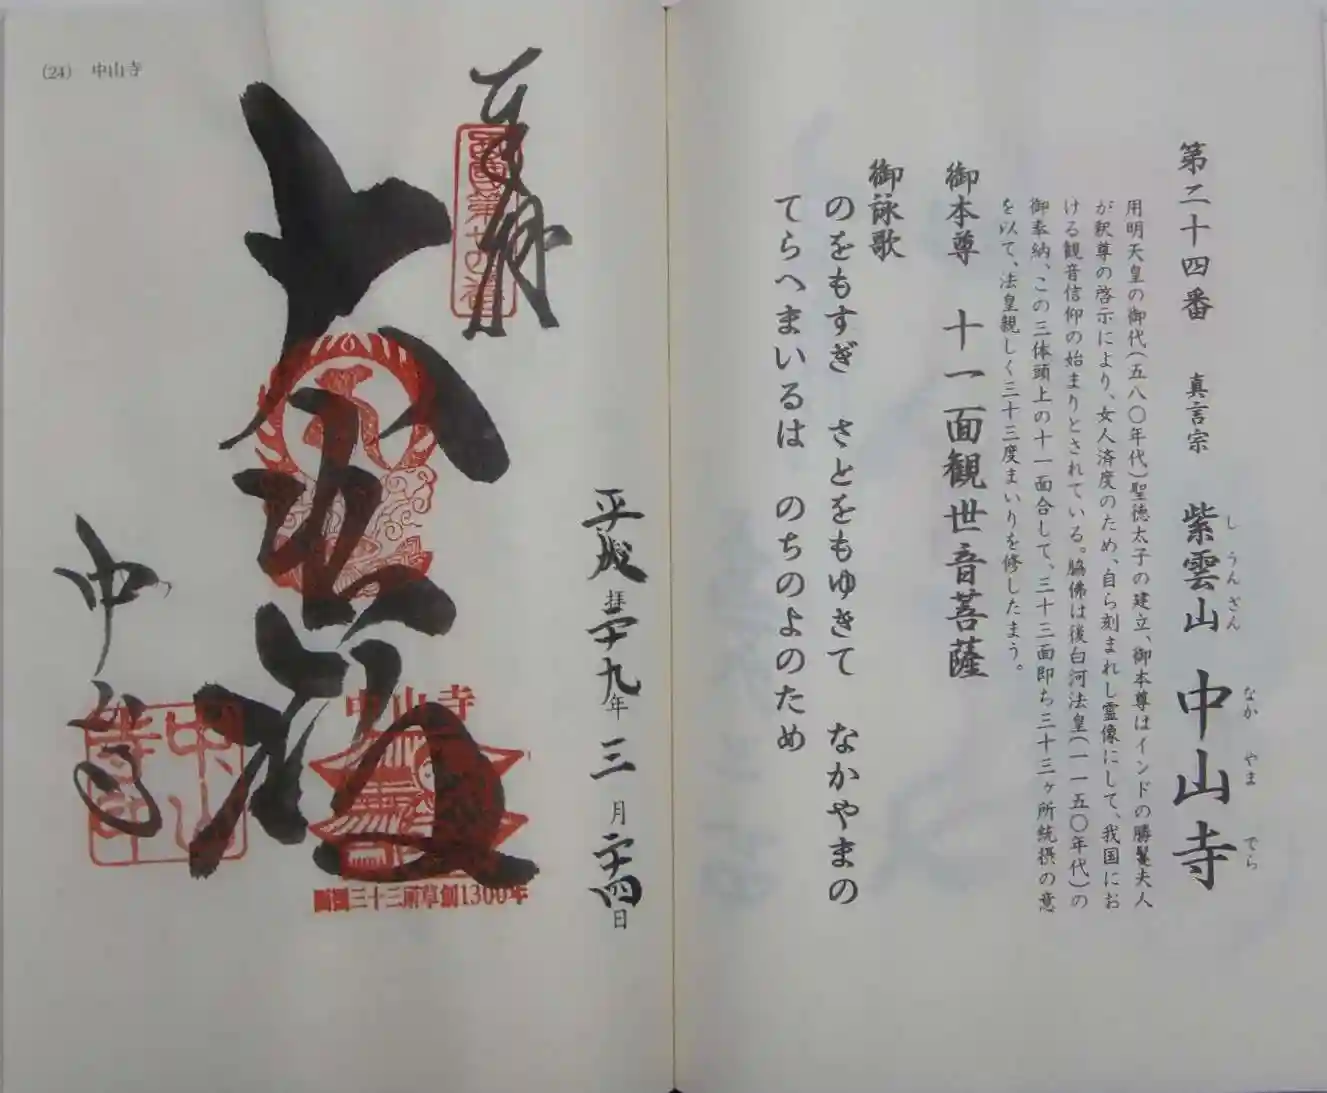 第二十四番 真言宗 紫雲山 中山寺
しうんざん なかやまでら
用明天皇の御代(五八〇年代)聖徳太子の建立、御本尊はインドの勝鬘夫人
が釈尊の啓示により、女人済度のため、自ら刻まれし霊像にして、我国にお
ける観音信仰の始まりとされている。脇佛は後白河法皇(一一五〇年代)の
御奉納、この三体頭上の十一面合して、三十三面即ち三十三ヶ所統摂の意
を以て、法皇親しく三十三度まいりを修したまう。
御本尊 十一面観世音菩薩
御詠歌
のをもすぎ さとをもゆきて なかやまの
てらへまいるは のちのよのため
(24) 中山寺
平成二十九年三月二十四日
奉拝
西國第廿四番
大悲殿
中山寺
中山寺
西国三十三所草創1300年
中山寺